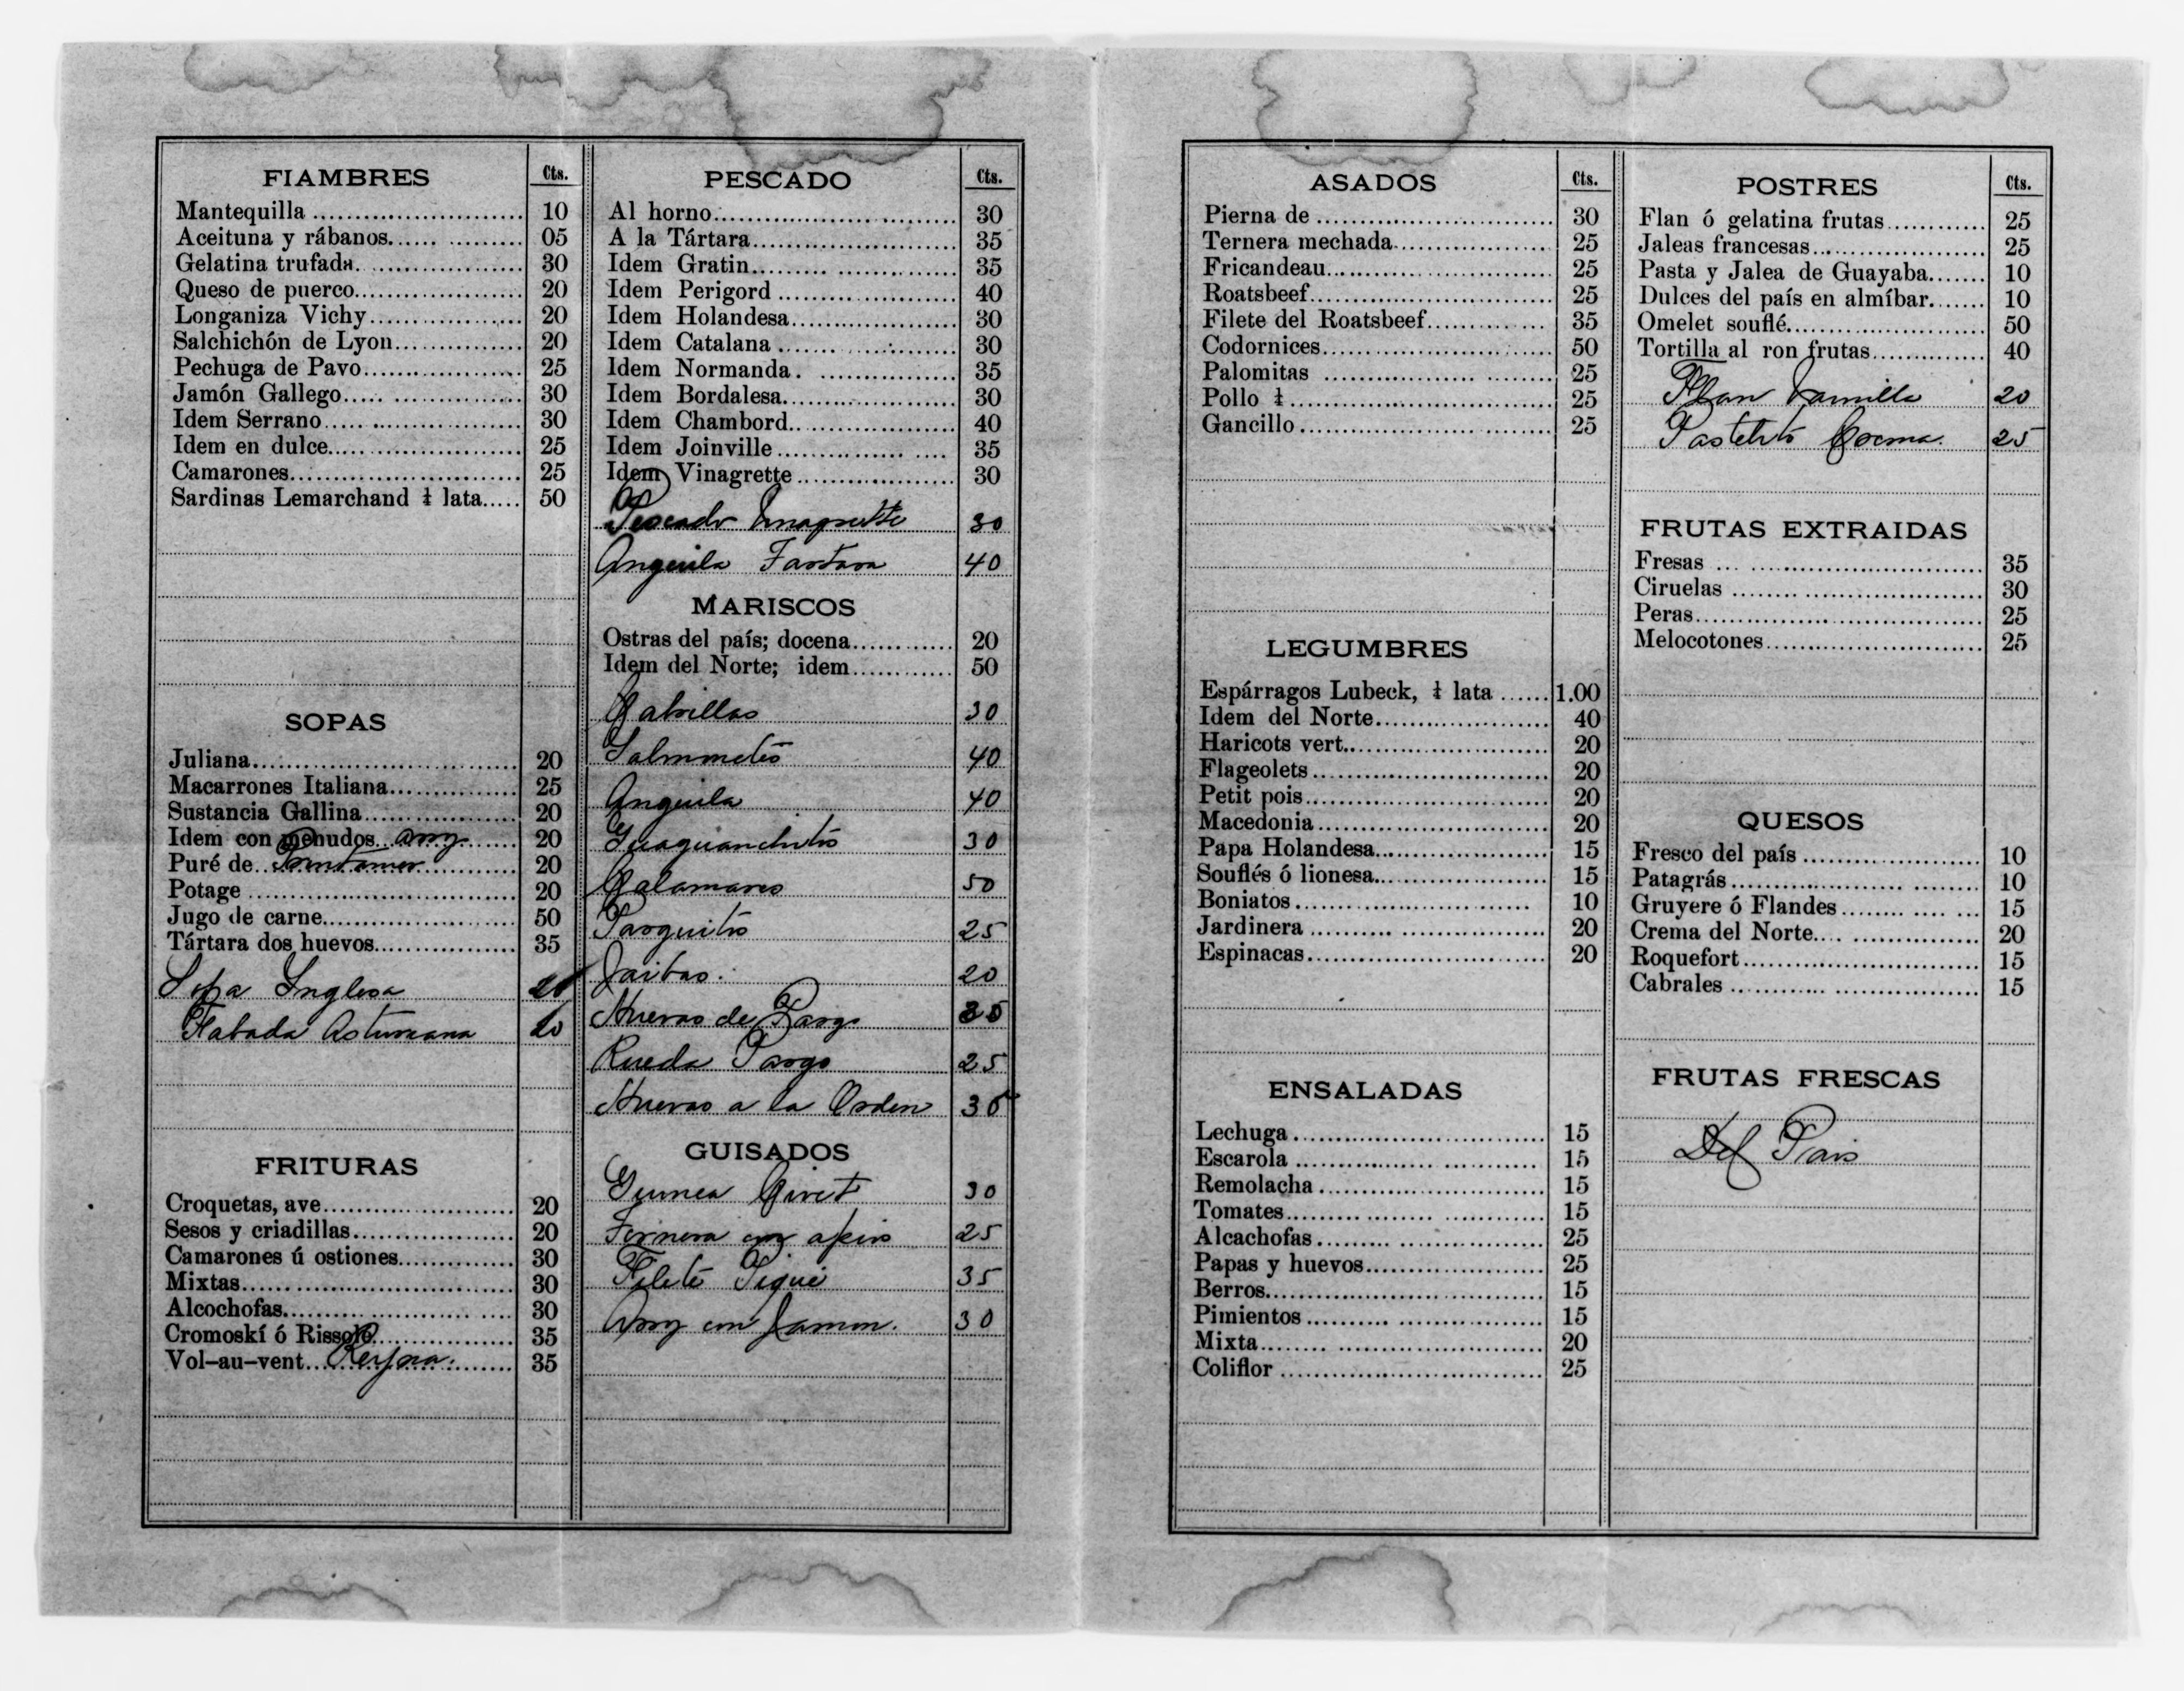 FIAMBRES Cts.
Mantequilla 10
Aceituna y rábanos 05
Gelatina trufada 30
Queso de puerco 20
Longaniza Vichy 20
Salchichón de Lyon 20
Pechuga de Pavo 25
Jamón Gallego 30
Idem Serrano 30
Idem en dulce 25
Camarones 25
Sardinas Lemarchand ¼ lata 50
SOPAS
Juliana 20
Macarrones Italiana 25
Sustancia Gallina 20
Idem con menudos 20
Puré de 20
Potage 20
Jugo de carne 50
Tártara dos huevos 35
Sopa Inglesa 20
Fabada Asturiana 20
FRITURAS
Croquetas, ave 20
Sesos y criadillas 20
Camarones ú ostiones 30
Mixtas 30
Alcochofas 30
Cromoskí ó Rissole 35
Vol-au-vent Reyna. 35
PESCADO Cts.
Al horno 30
A la Tártara 35
Idem Gratin 35
Idem Perigord 40
Idem Holandesa 30
Idem Catalana 30
Idem Normanda 35
Idem Bordalesa 30
Idem Chambord 40
Idem Joinville 35
Idem Vinagrette 30
Pescado Vinagrette 30
Anguila Tartara 40
MARISCOS
Ostras del país; docena 20
Idem del Norte; idem 50
Cabrillas 30
Salmonetes 40
Anguila 40
Guaguanchitos 30
Calamares 50
Parguitos 25
Jaibas. 20
Huevas de Pargo 35
Rueda Pargo 25
Huevas a la Orden 35
GUISADOS
Guinea Civet 30
Ternera con apio 25
Filete Piqué 35
Arroz con Jamon. 30
ASADOS Cts.
Pierna de 30
Ternera mechada 25
Fricandeau 25
Roatsbeef 25
Filete del Roatsbeef 35
Codornices 50
Palomitas 25
Pollo ¼ 25
Gancillo 25
LEGUMBRES
Espárragos Lubeck, ¼ lata 1.00
Idem del Norte 40
Haricots vert 20
Flageolets 20
Petit pois 20
Macedonia 20
Papa Holandesa 15
Souflés ó lionesa 15
Boniatos 10
Jardinera 20
Espinacas 20
ENSALADAS
Lechuga 15
Escarola 15
Remolacha 15
Tomates 15
Alcachofas 25
Papas y huevos 25
Berros 15
Pimientos 15
Mixta 20
Coliflor 25
POSTRES Cts.
Flan ó gelatina frutas 25
Jaleas francesas 25
Pasta y Jalea de Guayaba 10
Dulces del país en almíbar 10
Omelet souflé 50
Tortilla al ron frutas 40
Flan Vainilla 20
Pastelito Crema. 25
FRUTAS EXTRAIDAS
Fresas 35
Ciruelas 30
Peras 25
Melocotones 25
QUESOS
Fresco del país 10
Patagrás 10
Gruyere ó Flandes 15
Crema del Norte 20
Roquefort 15
Cabrales 15
FRUTAS FRESCAS
Del Pais